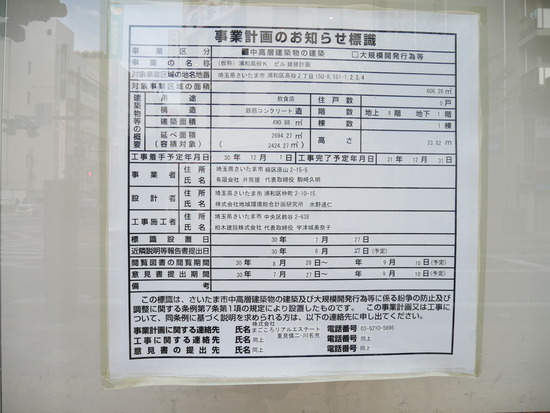 事業計画のお知らせ標識
事業区分 ■中高層建築物の建築 □大規模開発行為等
事業の名称 (仮称)浦和高砂K ビル建替計画
対象事業区域の地名地番 埼玉県さいたま市浦和区高砂2丁目150-8,151-1,2,3,4
対象事業区域の面積 606.26㎡
建築物等の概要
用途 飲食店 住戸数 0戸
構造 鉄筋コンクリート造 階数 地上8階 地下1階
建築面積 490.88㎡ 棟数 1棟
延べ面積 2694.27㎡ 高さ 33.02m
(容積対象) (2424.27㎡)
工事着手予定年月日 30年12月1日 工事完了予定年月日 31年12月31日
事業者 住所 埼玉県さいたま市緑区原山2-15-5
氏名 有限会社 井筒屋 代表取締役 駒崎久明
設計者 住所 埼玉県さいたま市浦和区仲町2-10-15
氏名 株式会社地域環境総合計画研究所 水野達仁
工事施工者 住所 埼玉県さいたま市中央区鈴谷2-638
氏名 柏木建設株式会社 代表取締役 宇津城美奈子
標識設置日 30年7月27日
近隣説明等報告書提出日 30年8月27日(予定)
閲覧図書の閲覧期間 30年8月28日~年9月10日(予定)
意見書提出期間 30年7月27日~年9月10日(予定)
備考
この標識は、さいたま市中高層建築物の建築及び大規模開発行為等に係る紛争の防止及び
調整に関する条例第7条第1項の規定により設置したものです。 この事業計画又は工事に
ついて、同条例に基づく説明を求められる方は、以下の連絡先に申し出てください。
事業計画に関する連絡先 氏名 株式会社まごころリアルエステート 電話番号 03-5210-5695
重見慎二・川名光
工事に関する連絡先 氏名 同上 電話番号 同上
意見書の提出先 氏名 同上 電話番号 同上